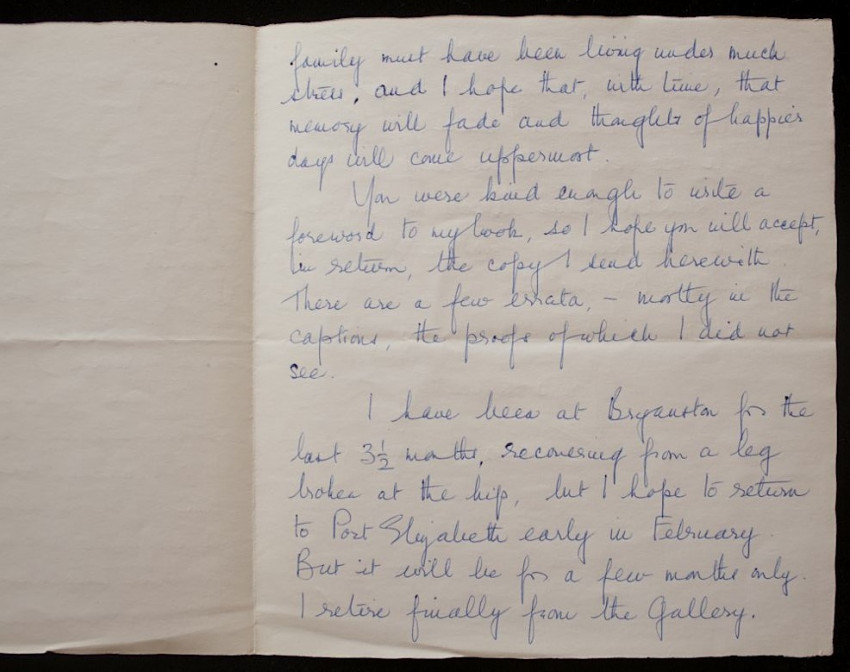 family must have been living under much
stress, and I hope that, with time, that
memory will fade and thoughts of happier
days will come uppermost.
You were kind enough to write a
foreword to my book, so I hope you will accept,
in return, the copy I send herewith.
There are a few errata, – mostly in the
captions, the proofs of which I did not
see.
I have been at Bryanston for the
last 3½ months, recovering from a leg
broken at the hip, but I hope to return
to Port Elizabeth early in February.
But it will be for a few months only.
I retire finally from the Gallery.